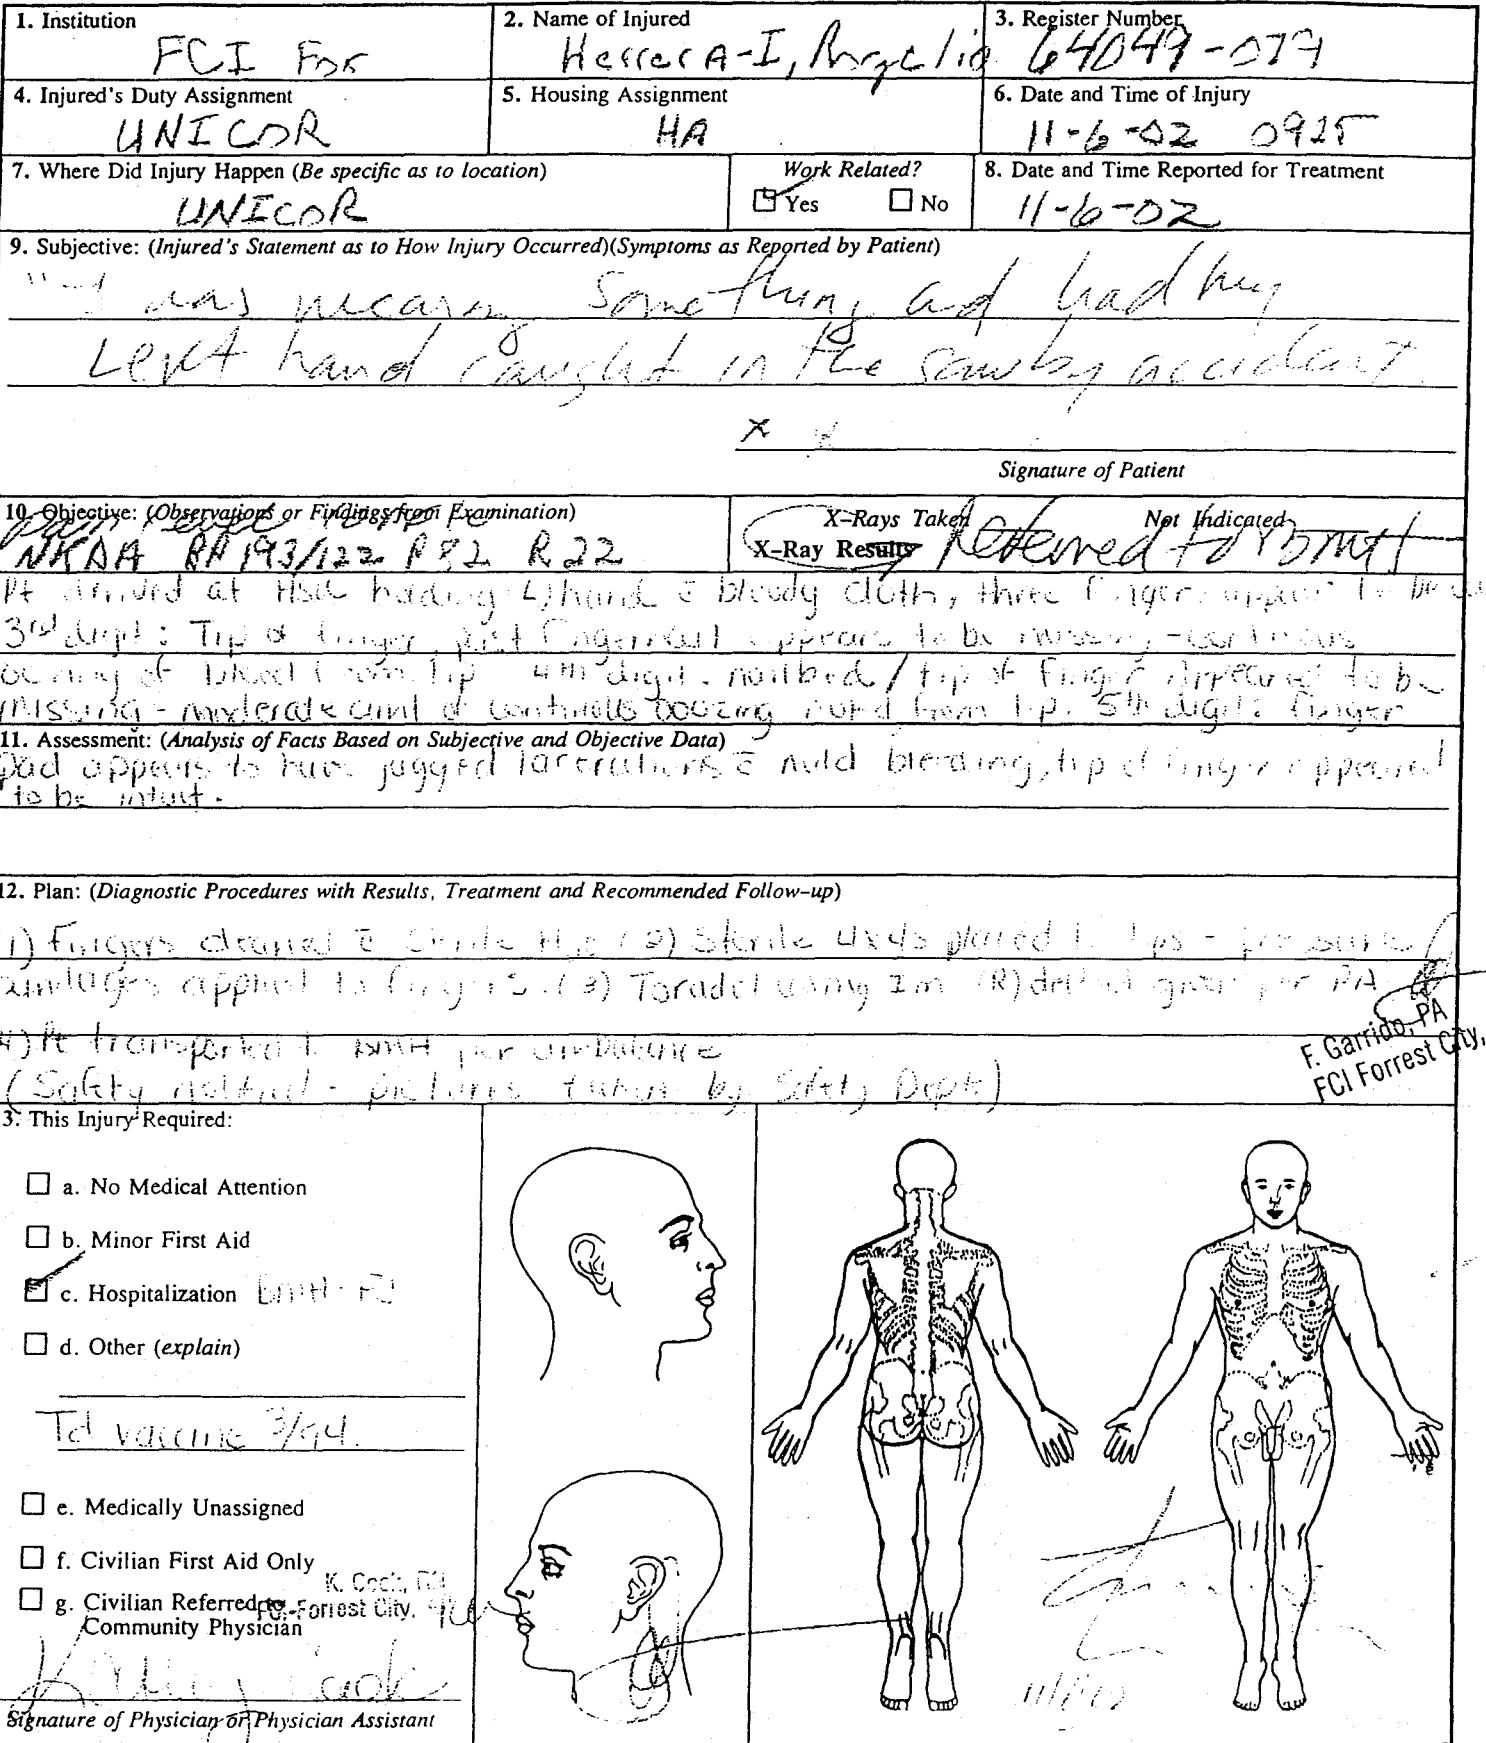 1. Institution
FCI For
2. Name of Injured
Herrera-I, Argelio
3. Register Number
64049-079
4. Injured's Duty Assignment
UNICOR
5. Housing Assignment
HA
6. Date and Time of Injury
11-6-02 0925
7. Where Did Injury Happen (Be specific as to location)
UNICOR
Work Related?
Yes No
8. Date and Time Reported for Treatment
11-6-02
9. Subjective: (Injured's Statement as to How Injury Occurred)(Symptoms as Reported by Patient)
"I was something ad had my
Left hand caught in the saw by accident
x
Signature of Patient
10. Objective: (Observations or Findings from Examination)
pain level
NKDA BP 193/122 P 82 R 22
X-Rays Taken Not Indicated
X-Ray Results Referred to BMH
Pt arrived at HSU holding L) hand c̄ bloody cloth, three fingers appear to be
3rd digit: Tip of finger, past fingernail appears to be missing - continuous
oozing of blood from tip 4th digit. nailbed / tip of finger appeared to be
missing - moderate amt of continuous oozing noted from tip. 5th digit: finger
11. Assessment: (Analysis of Facts Based on Subjective and Objective Data)
pad appears to have jagged lacerations c̄ mild bleeding, tip of finger appeared
to be intact.
12. Plan: (Diagnostic Procedures with Results, Treatment and Recommended Follow-up)
1) Fingers cleaned c̄ Sterile H2O (2) Sterile 4x4s placed to tips - pressure
bandages applied to fingers. (3) Toradol 60mg Im (R) deltoid given per PA
4) Pt transported to BMH per ambulance
(Safety notified - pictures taken by Safety Dept)
F. Garrido, PA
FCI Forrest City,
3. This Injury Required:
a. No Medical Attention
b. Minor First Aid
c. Hospitalization BMH - FC
d. Other (explain)
Td vaccine 3/94.
e. Medically Unassigned
f. Civilian First Aid Only
g. Civilian Referred to
Community Physician
K. Cook, RN
FCI-Forrest City,
Kathy Cook
Signature of Physician or Physician Assistant